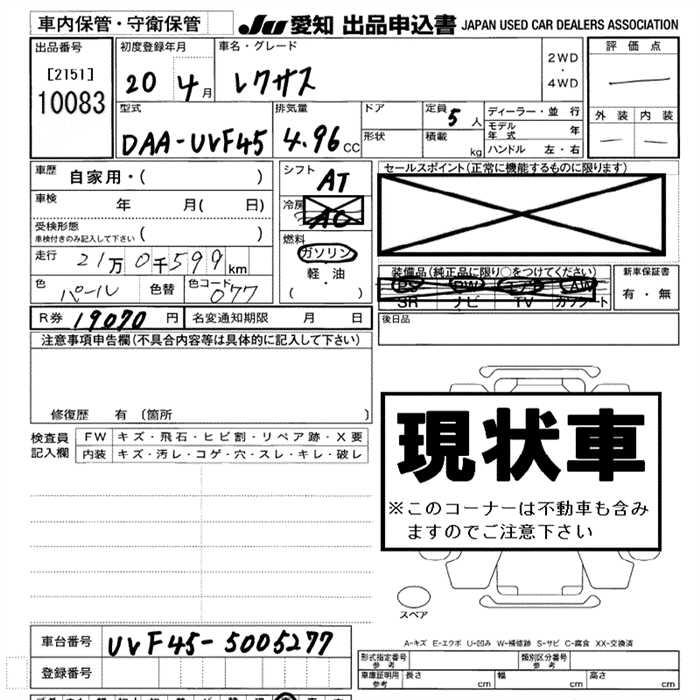 車内保管・守衛保管
JU 愛知 出品申込書 JAPAN USED CAR DEALERS ASSOCIATION
出品番号
[2151]
10083
初度登録年月
20 4月
車名・グレード
レクサス
2WD
・
4WD
評価点
外装 内装
型式
DAA-UVF45
排気量
4.96 CC
ドア
形状
定員 5人
積載 kg
ディーラー・並行
モデル年式 年
ハンドル 左・右
車歴 自家用・( )
車検 年 月( 日)
受検形態
車検付きのみ記入して下さい ( )
走行 21万0千599km
色 パール 色替 色コード 077
シフト AT
冷房 AC
燃料
ガソリン
軽・油
( ・ )
セールスポイント(正常に機能するものに限ります)
装備品(純正品に限り○をつけてください)
PS PW エアB AW
SR ナビ TV ガソケート
新車保証書
有・無
R券 19070 円 名変通知期限 月 日
後日品
注意事項申告欄(不具合内容等は具体的に記入して下さい)
修復歴 有 (箇所 )
検査員記入欄
FW キズ・飛石・ヒビ割・リペア跡・X要
内装 キズ・汚レ・コゲ・穴・スレ・キレ・破レ
現状車
※このコーナーは不動車も含み
ますのでご注意下さい
スペア
A-キズ E-エクボ U-凹み W-補修跡 S-サビ C-腐食 XX-交換済
車台番号 UVF45-5005277
登録番号
形式指定番号 参考
類別区分番号 参考
車庫証明用 参考 長さ cm 幅 cm 高さ cm